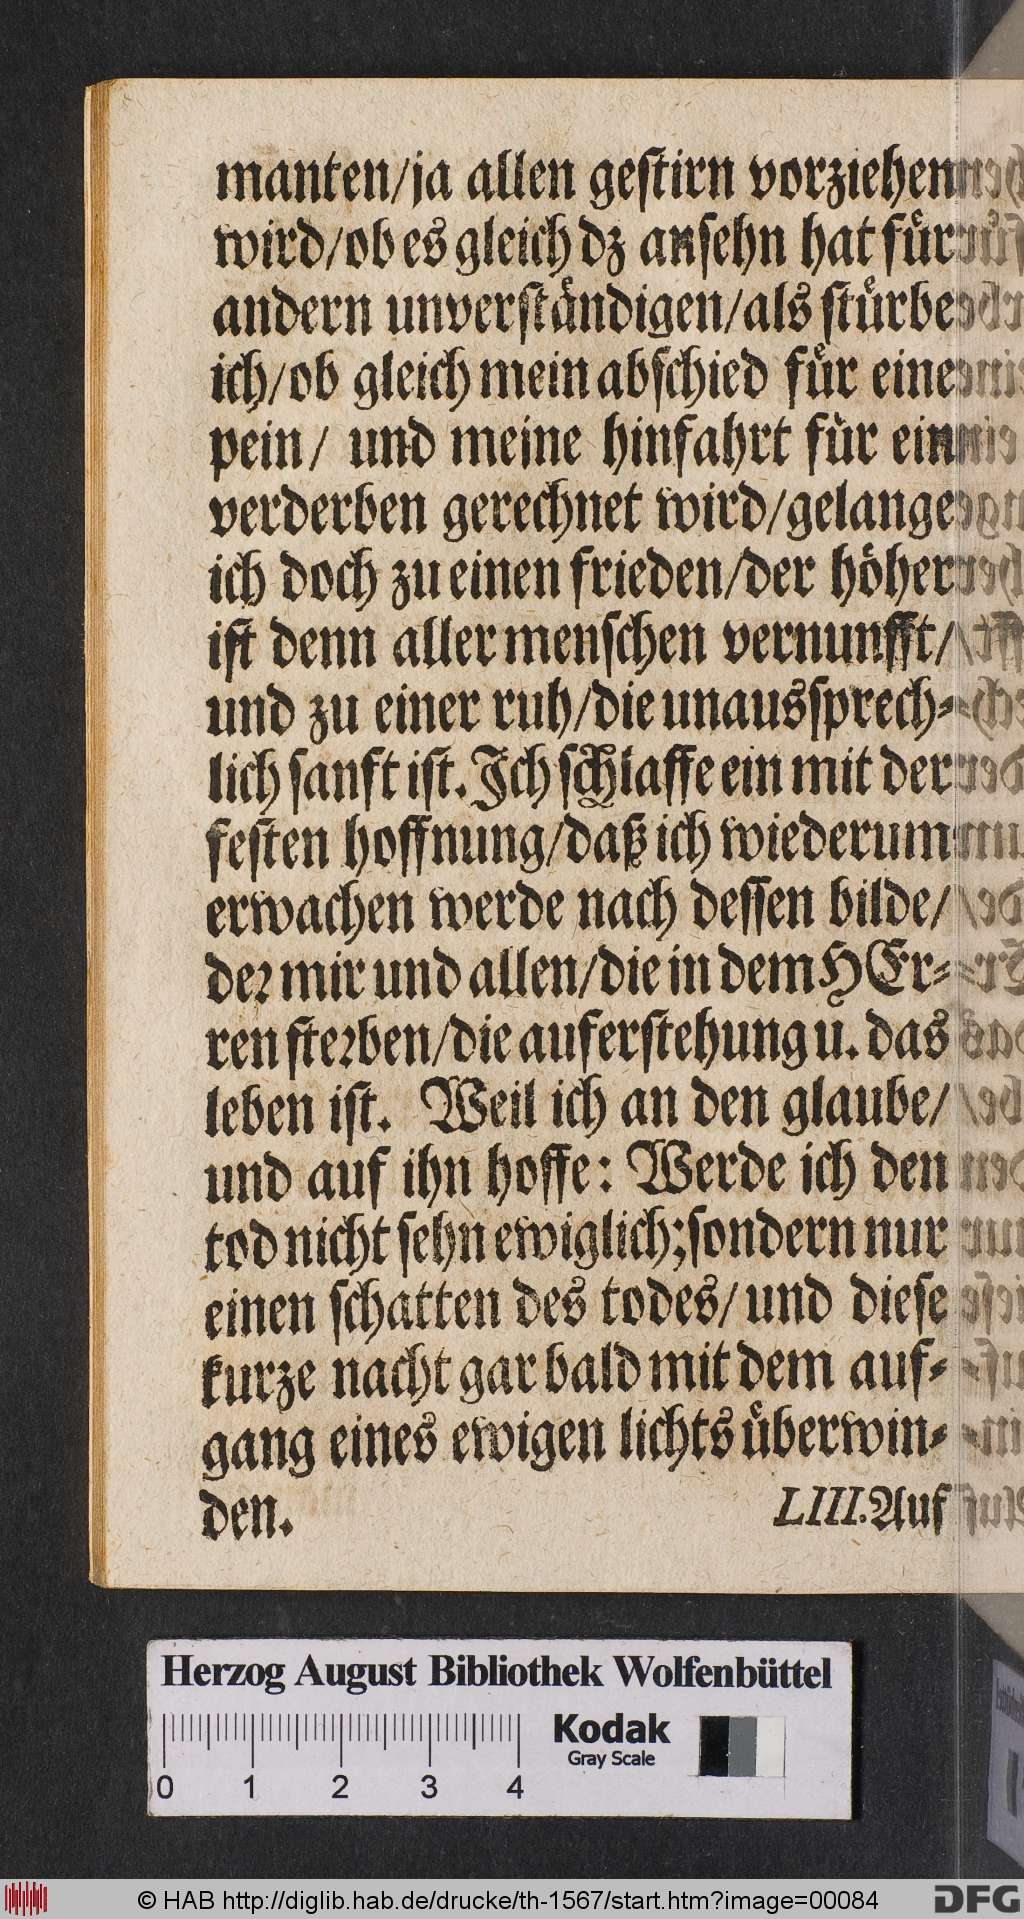 manten/ja allen gestirn vorziehen
wird/ob es gleich dz ansehn hat fuͤr
andern unverstaͤndigen/als stuͤrbe
ich/ob gleich mein abschied fuͤr eine
pein/ und meine hinfahrt fuͤr ein
verderben gerechnet wird/gelange
ich doch zu einen frieden/der hoͤher
ist denn aller menschen vernunfft/
und zu einer ruh/die unaussprech-
lich sanft ist. Ich schlaffe ein mit der
festen hoffnung/daß ich wiederum
erwachen werde nach dessen bilde/
der mir und allen/die in dem HEr-
ren sterben/die auferstehung u. das
leben ist. Weil ich an den glaube/
und auf ihn hoffe: Werde ich den
tod nicht sehn ewiglich; sondern nur
einen schatten des todes/und diese
kurze nacht gar bald mit dem auf-
gang eines ewigen lichts uͤberwin-
den.
LIII. Auf
Herzog August Bibliothek Wolfenbüttel
Kodak
Gray Scale
0 1 2 3 4
© HAB http://diglib.hab.de/drucke/th-1567/start.htm?image=00084
DFG